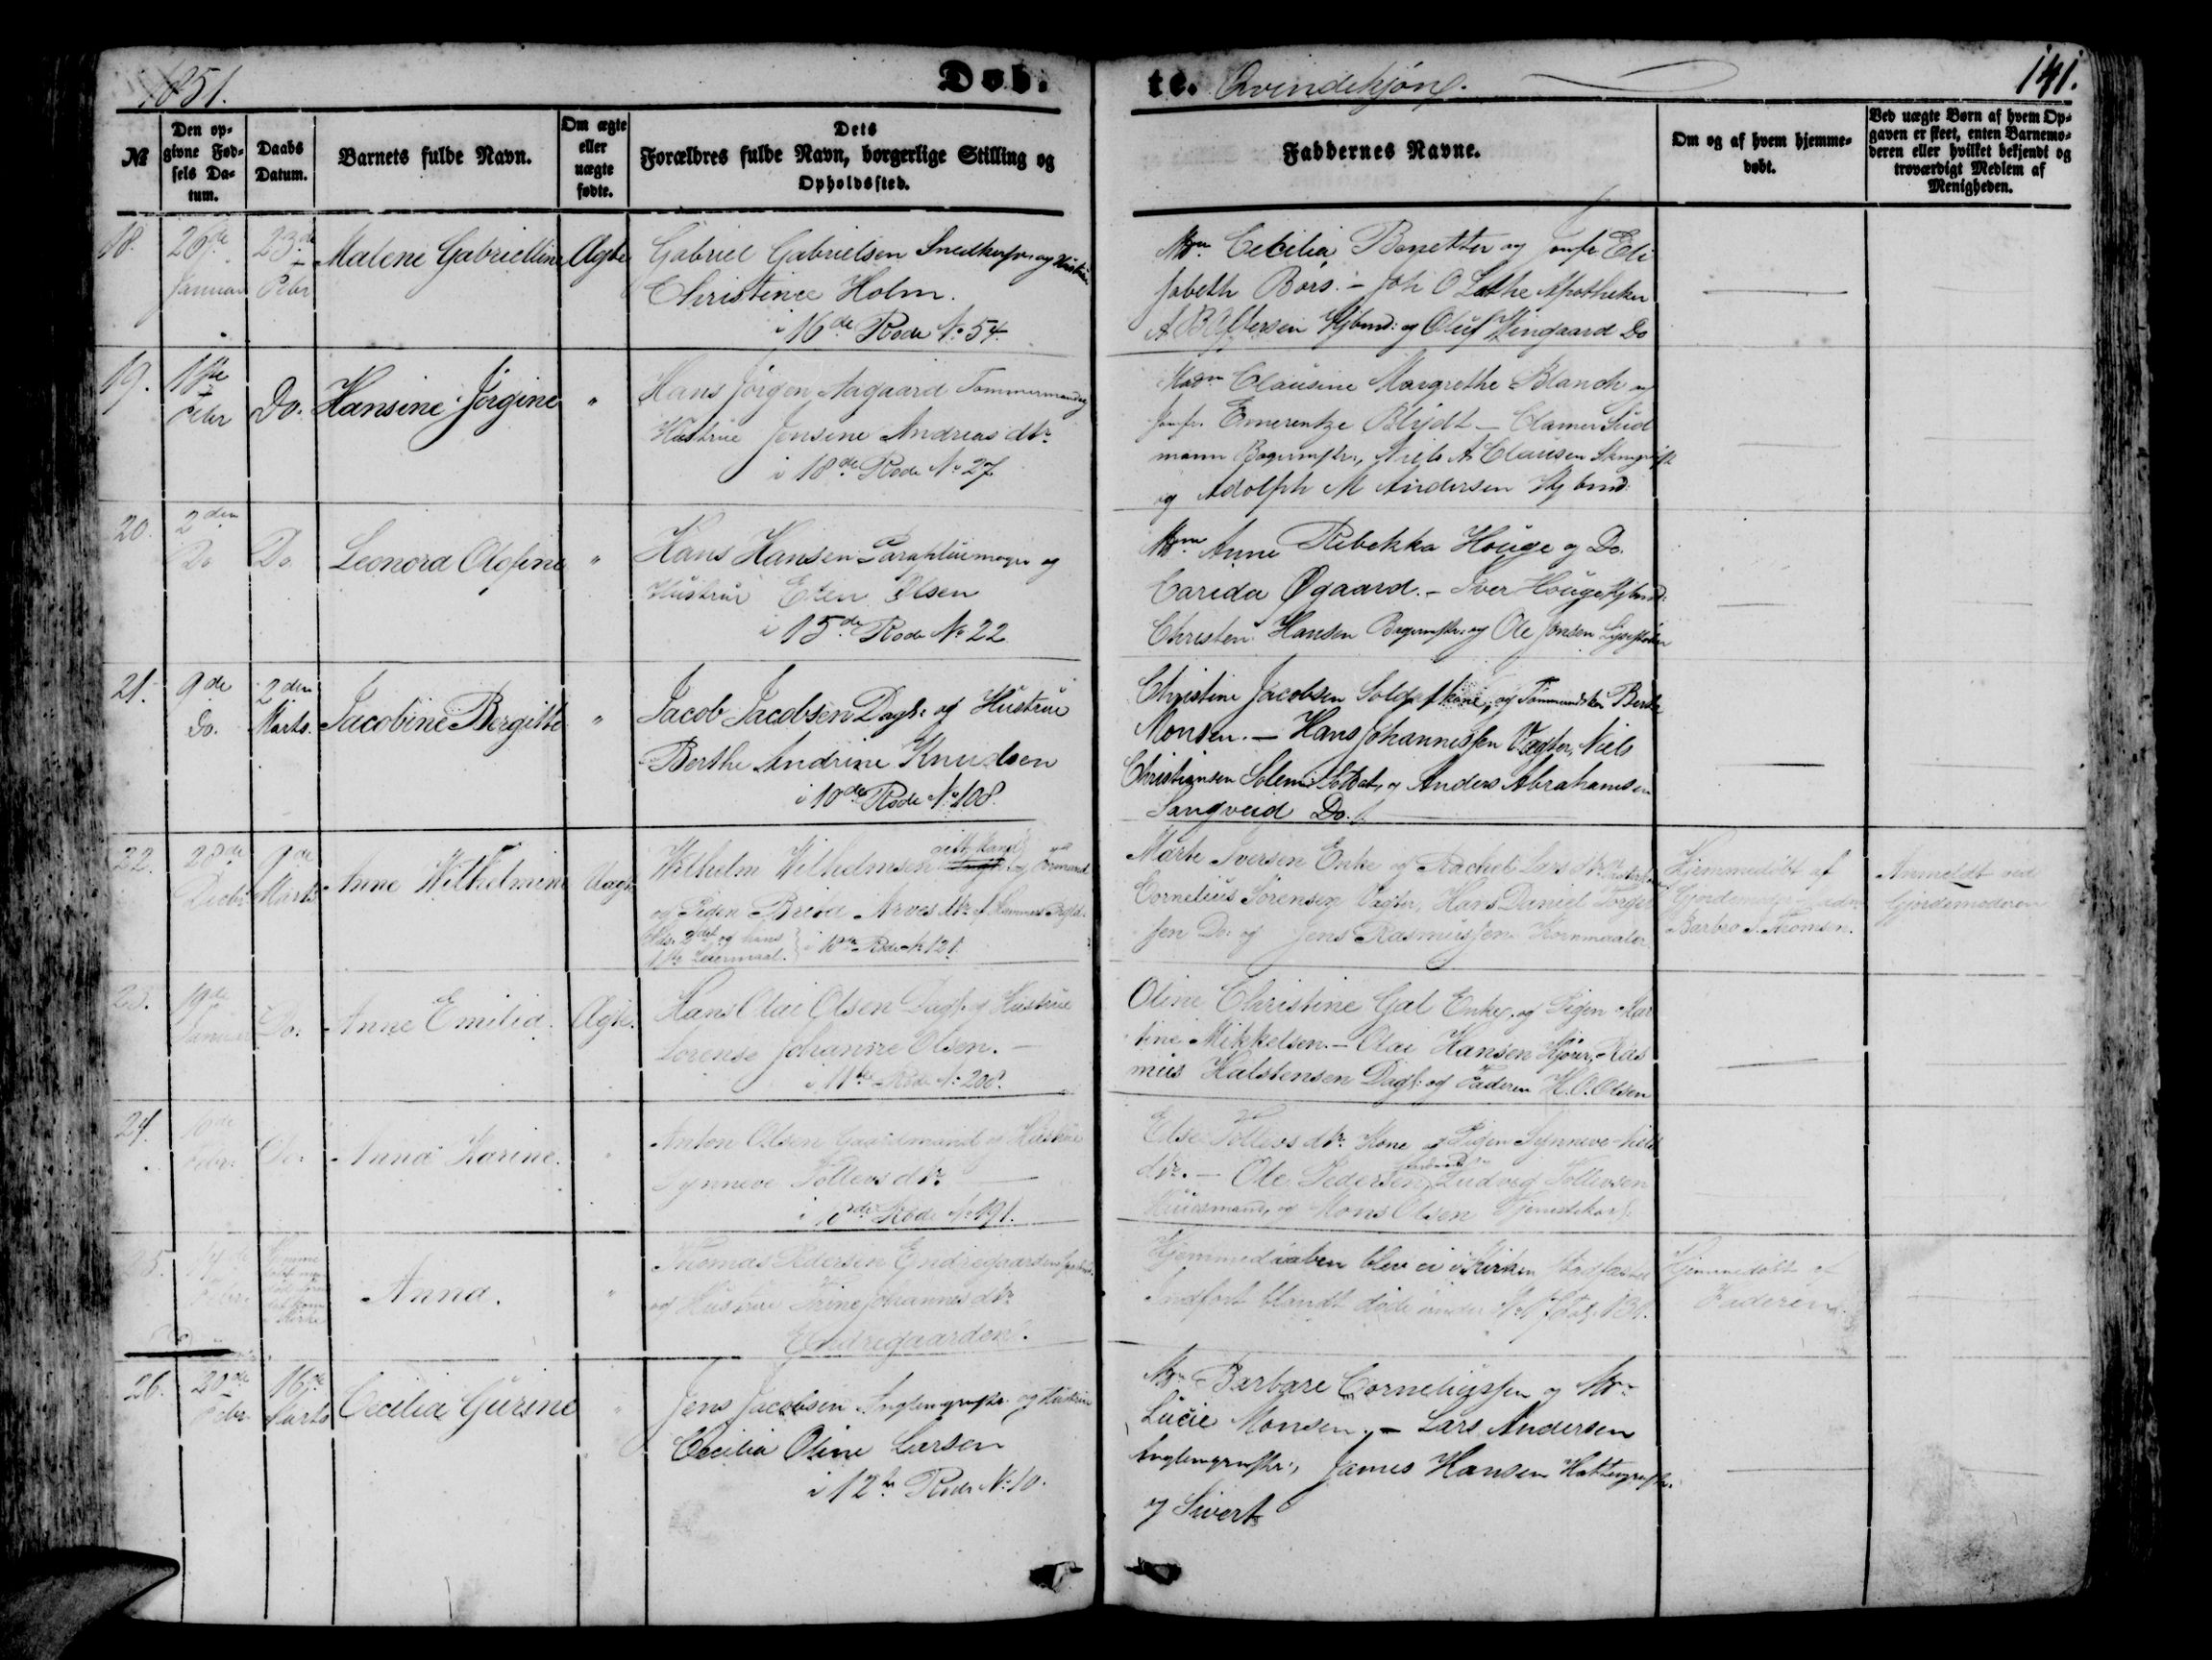 1851.
Døb-
te. Qvindekjøn.
141.
№
Den op-
givne Fød-
sels Da-
tum.
Daabs
Datum.
Barnets fulde Navn.
Om ægte
eller
uægte
fødte.
Dets
Forældres fulde Navn, borgerlige Stilling og
Opholdssted.
Faddernes Navne.
Om og af hvem hjemme-
døbt.
Ved uægte Børn af hvem Op-
gaven er skeet, enten Barnemo-
deren eller hvilket bekjendt og
troværdigt Medlem af
Menigheden.
18.
26de
Januar
23de
Febr
Malene Gabrielline
Ægte
Gabriel Gabrielsen Snedkersv. og Hustru
Christince Holm.
i 16de Rode No. 54.
Mdm Cecilia Benetter og Jomfr Eli
sabeth Børs. - Joh O Lothe Apotheker
A B Oltersen Kjbmd: og Oluf Wingaard Do
19.
1ste
Febr
Do.
Hansine Jørgine
"
Hans Jørgen Aagaard Tømmermand og
Hustrue Jensine Andreas dtr.
i 18de Rode No 27
Madm Clausine Margrethe Blanch og
Jomfr. Emerentze Blydt - Clamer Sud
mann Bagermstr:, Niels A Clausen
og Adolph M Andersen Kjbmd:
20.
2den
Do
Do.
Leonora Olofine
"
Hans Hansen Parapluimager og
Hustrue Elen Olsen
i 15de Rode No 22
Mdm Anne Rebekka Houge og Do.
Carida Øgaard. - Iver Houge Kjbmd:
Christen Hansen Bagermstr: og Ole Jonsen Lysestøber
21.
9de
Do.
2den
Marts.
Jacobine Bergitte
"
Jacob Jacobsen Dagk: og Hustrue
Berthe Andrine Knudsen
i 10de Rode No. 108.
Christine Jacobsen Soldatkone, og Tømmermdskone Berthe
Monsen. - Hans Johannessen Vægter, Niels
Christiansen Solem Soldat, og Anders Abrahamsen
Sangveid Do.
22.
28de
Decbr
9de
Marts
Anne Wilhelmine
Uægte
Wilhelm Wilhelmsen gift Mand
og Pigen Britha Arves dtr. af Hammers Prgld.
Hds: 2det og hans
1ste Leiermaal. } i 10de Rode No 121.
Marte Iversen Enke og Rachel Lars dtr.
Cornelius Sørensen Vægter, Hans Daniel Torger
sen Do: og Jens Rasmussen Kornmaaler.
Hjemmedøbt af
Gjordemoder Mdm
Barbro S. Thomsen.
Anmeldt ved
Gjordemoderen
23.
19de
Januar
Do.
Anne Emilia.
Ægte.
Hans Olai Olsen Dagk. og Hustrue
Lorense Johanne Olsen. -
i 11te Rode No. 208.
Oline Christine Gal Enke, og Pigen Mar
tine Mikkelsen. - Olai Hansen Kjører, Ras
mus Halstensen Dagk: og Faderen H. O. Olsen
24.
16de
Febr.
Do.
Anna Karine.
"
Anton Olsen Gaardmand og Hustrue
Synneve Tollevs dtr.
i Rode No 191.
Else Tollevs dtr. Kone og Pigen Synneve Niels
dtr. - Ole Pedersen, Ludvig Tollevsen
Huusmand, og Mons Olsen Tjenestekarl:
25.
Febr.
Anna.
"
Thomas Pedersen Endregaarden
og Hustrue Trine Johannes dtr
Endregaarden.
Hjemmedaaben blev ei i Kirken stadfæstet
Indført blandt døde under No 17 Fol. 130.
Hjemmedøbt af
Faderen.
26.
20de
Febr
16de
Marts
Cecilia Gurine
"
Jens Jacobsen Anglemgrstr. og Hustrue
Cecilia Oline Larsen
i 12te Rode No. 10.
Mdm Barbare Corneliussen og Mdm
Lucie Monsen. - Lars Andersen
Anglemgrmstr:, James Hansen Hattemgrstr.
og Sivert